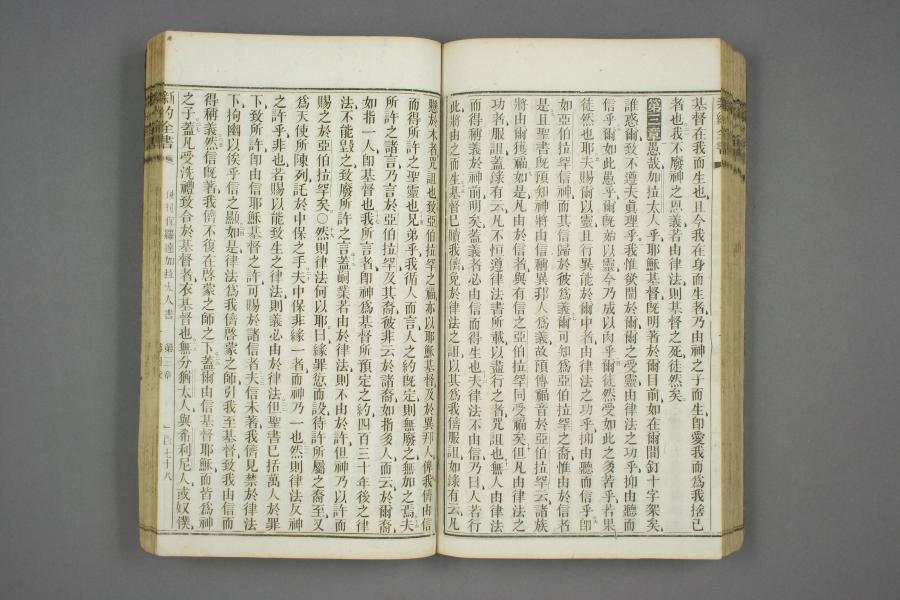 基督在我而生也且今我在身而生者乃由神之子而生卽愛我而爲我捨己
者也我不廢神之恩義若由律法則基督之死徒然矣
第三章愚哉加拉太人乎耶穌基督旣明著於爾目前如在爾間釘十字架矣
誰惑爾致不遵夫眞理乎我惟欲聞於爾爾之受靈由律法之功乎抑由聽而
信乎爾如此愚乎爾旣始以靈今乃成以肉乎爾徒然受如此之多苦乎若果
徒然也耶夫賜爾以靈且行異能於爾中者由律法之功乎抑由聽而信乎卽
如亞伯拉罕信神而其信歸於彼爲義爾可知爲亞伯拉罕之裔惟由於信者
是且聖書旣預知神將由信稱異邦人爲義故預傳福音於亞伯拉罕云諸族
將由爾獲福如是凡由於信者與有信之亞伯拉罕同受福矣但凡由律法之
功者服詛蓋錄有云凡不恒遵律法書所載以盡行之者咒詛也無人由律法
而得稱義於神前明矣蓋義者必由信而得生也夫律法不由信乃曰人若行
此將由之而生基督已贖我儕免於律法之詛以其爲我儕服詛如錄有云凡
懸於木者咒詛也致亞伯拉罕之福亦以耶穌基督及於異邦人俾我儕由信
而得所許之聖靈也兄弟乎我循人而言人之約旣定則無廢之無加之焉夫
所許之諸言乃言於亞伯拉罕及其裔彼非云於諸裔如指多人而云於爾裔
如指一人卽基督也我所言者卽神爲基督所預定之約四百三十年後之律
法不能毀之致廢所許之言蓋嗣業若由於律法則不由於許但神乃以許而
賜之於亞伯拉罕矣○然則律法何以耶曰緣罪愆而設待許所屬之裔至又
爲天使所陳列託於中保之手夫中保非緣一者而神乃一也然則律法反神
之許乎非也若賜以能致生之律法則義必由於律法但聖書已括萬人於罪
下致所許卽由信耶穌基督之許可賜於諸信者夫信未著我儕見禁於律法
下拘幽以俟乎信之顯如是律法爲我儕啓蒙之師引我至基督致我由信而
得稱義然信旣著我儕不復在啓蒙之師之下蓋爾由信基督耶穌而皆爲神
之子蓋凡受洗禮致合於基督者衣基督也無分猶太人與希利尼人或奴僕
新約全書
保羅達加拉太人書
第三章
一百七十八